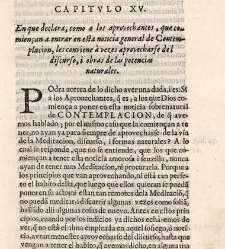 CAPITVLO XV.
En que declara, como a los aprovechantes, que co-
miençan a entrar en esta noticia general de Contem-
placion, les conviene à vezes aprovecharse del
discurso, i obras de las potencias
naturales.
POdrà acerca de lo dicho aver una duda, i es: Si
a los Aprovechantes, q̃ es, a los que Dios co-
miença a poner en esta noticia sobrenatural
de CONTEMPLACION, de que a-
vemos hablado; por el mismo caso que la comiençan a te-
ner, no ayan ya para siempre de aprovecharse de la via
de la Meditacion, discurso, i formas naturales? A lo
qual se responde, que no se entiende, que los que co-
miençan a tener esta noticia amorosa i senzilla, nunca
ayan de tener mas Meditacion, ni procurarla. Porque a los
principios que van aprovechando, ni està tan perfe-
to el habito della, que luego que ellos quieran, se pueden
poner en su acto, ni estan tan remotos de la Meditaciõ,
que no puedan meditar i discurrir algunas vezes como solian,
hallando alli alguna cosa de nuevo. Antes en estos prin-
cipios, cuando por los indicios ya dichos echaremos de
ver, que no està el alma empleada en aquel sossiego i noticia,
avràn menester aprovecharse del discurso, hasta que
vengan a tener el habito, que avemos dicho, en